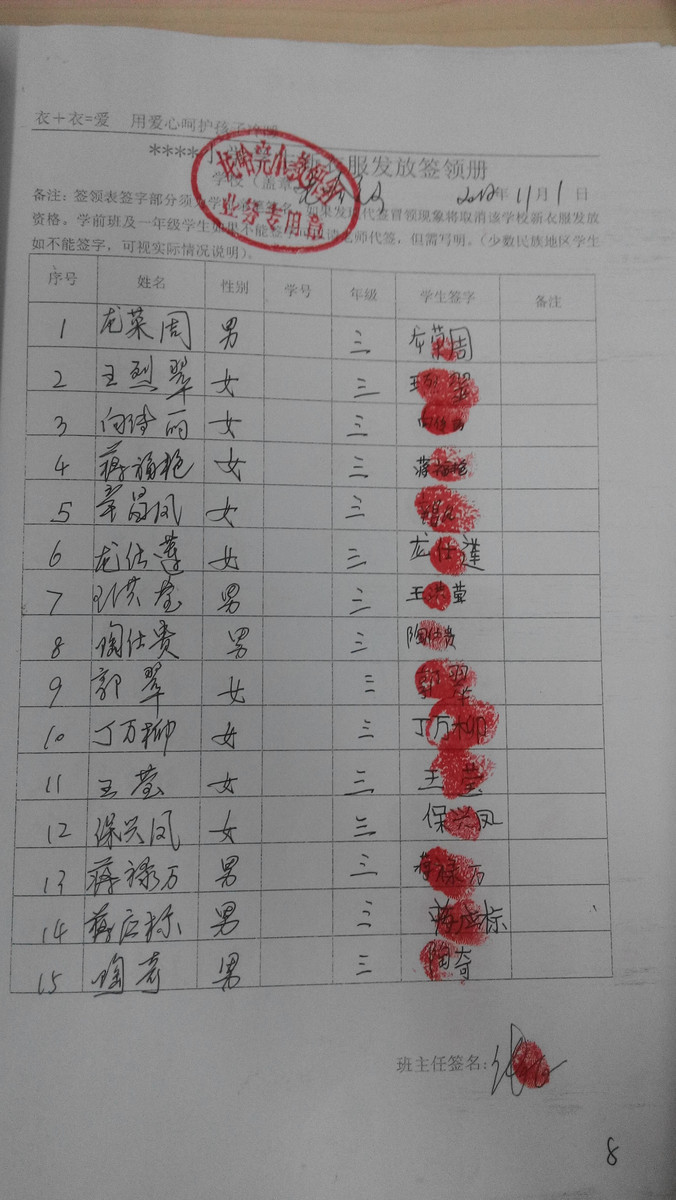 衣+衣=爱 用爱心呵护孩子冷暖
****小 衣服发放签领册
学校(盖章) 2012年11月1日
托哈完小教 业务专用章
备注:签领表签字部分须 学 签名,如果发现代签冒领现象将取消该学校新衣服发放
资格。学前班及一年级学生如果不能签字 老师代签,但需写明。(少数民族地区学生
如不能签字,可视实际情况说明)。
序号 姓名 性别 学号 年级 学生签字 备注
1 龙菜周 男 三 龙菜周
2 王烈翠 女 三 王烈翠
3 向诗丽 女 三
4 蒋福艳 女 三 蒋福艳
5 章昌凤 女 三
6 龙仕莲 女 三 龙仕莲
7 王洪莹 男 三 王洪莹
8 陶仕贵 男 三 陶仕贵
9 郭翠 女 三 郭翠
10 丁万柳 女 三 丁万柳
11 王莹 女 三 王莹
12 保兴凤 女 三 保兴凤
13 蒋禄万 男 三 蒋禄万
14 蒋应标 男 三 蒋应标
15 陶奇 男 三 陶奇
班主任签名:
8